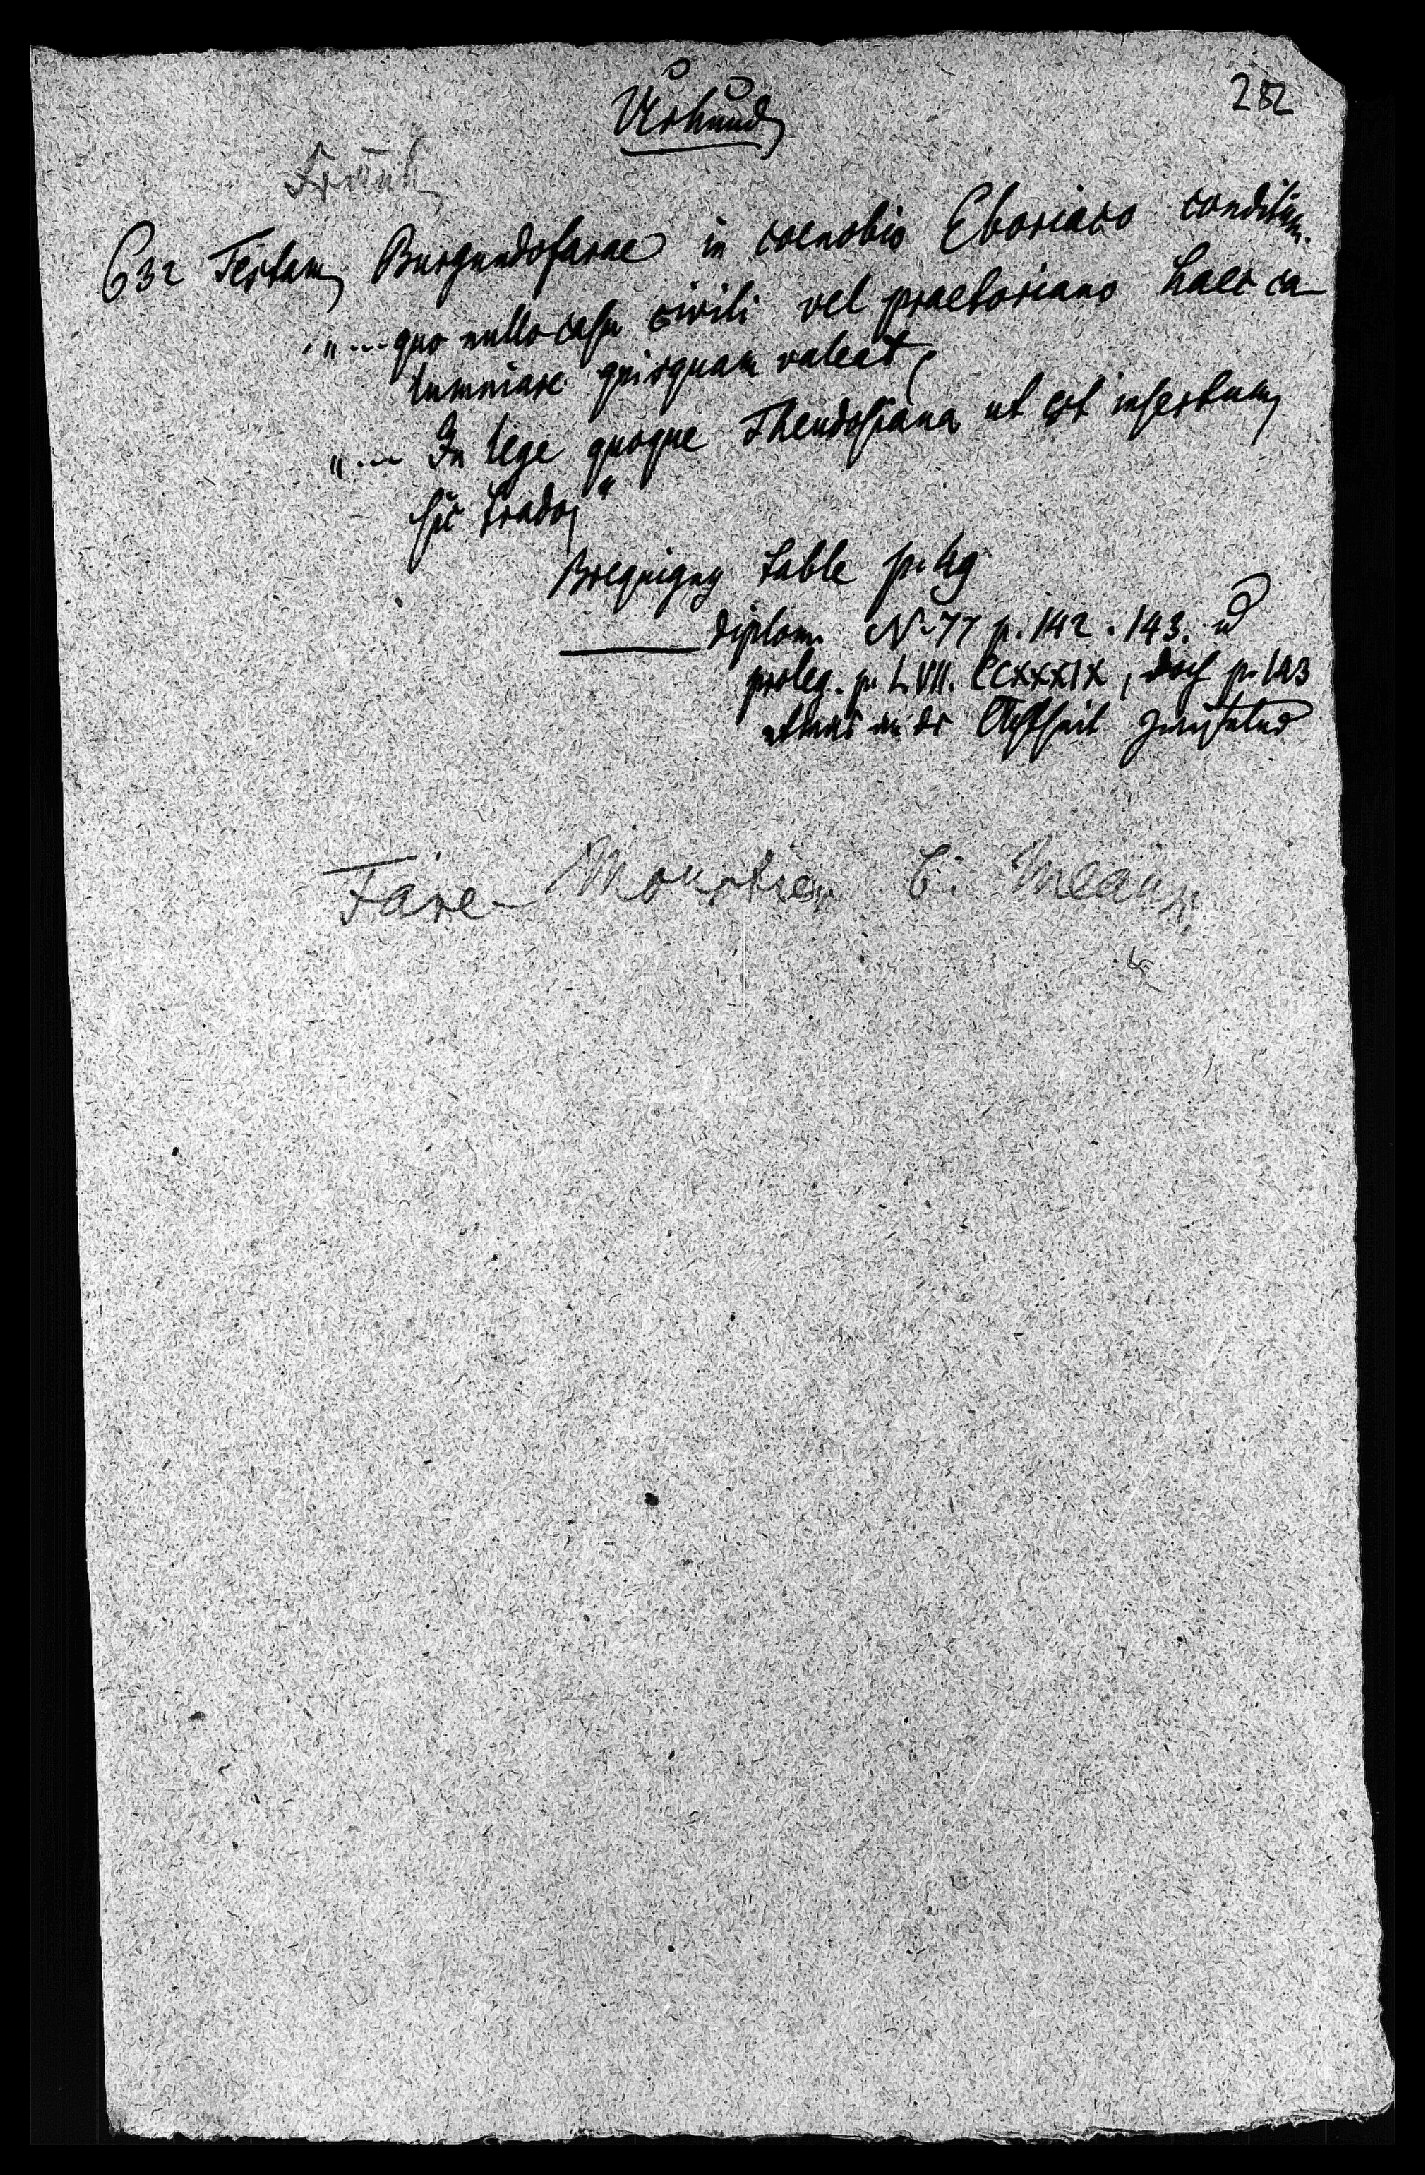 282
Urkund
Fränk
632 Testam Burgundofarae in coenobio Eboriaco conditum.
"... quo nullo casu civili vel praetoriano haec ca-
lumniare quisquam valeat,
"... In lege quoque Theudosiana ut est insertum
sic trado"
Brequigny table p. 49
diplom. N. 77 p. 142. 143. u
proleg. p. LVII. CCXXXIX, doch p. 143
etwas an der Aechtheit
Fare Moustier bei Meaux